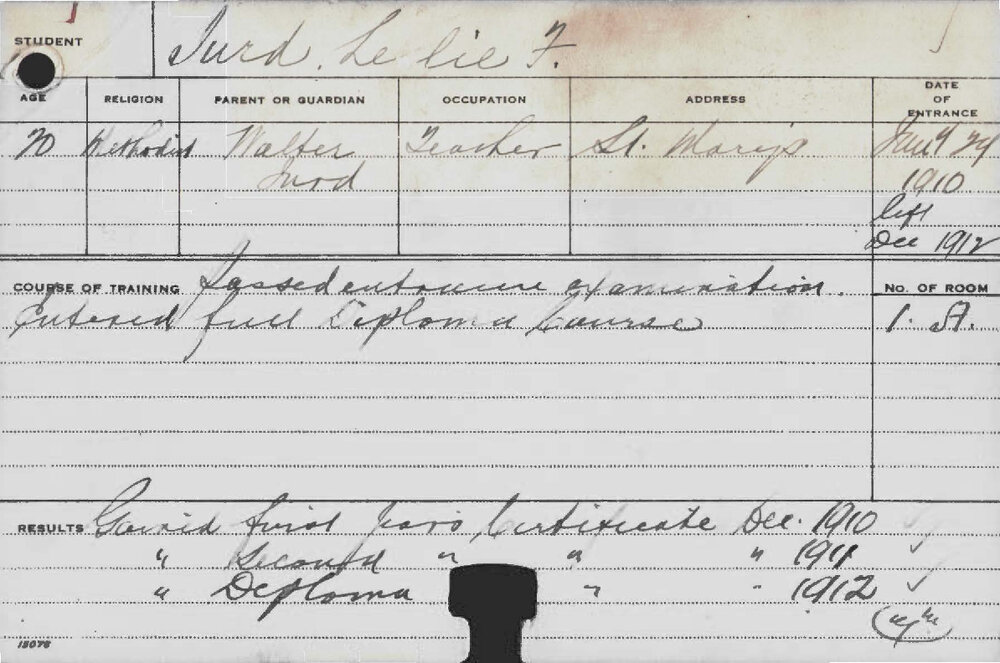 STUDENT Jurd. Leslie F.
AGE RELIGION PARENT OR GUARDIAN OCCUPATION ADDRESS DATE OF ENTRANCE
20 Methodist Walter Teacher St. Mary's Jan'y 29
Jurd 1910
left
Dec 1912
COURSE OF TRAINING Passed entrance examination. No. OF ROOM
Entered full Diploma Course 1. A.
RESULTS Gained First Years Certificate Dec. 1910
" Second " " " 1911
" Diploma " " 1912
15076